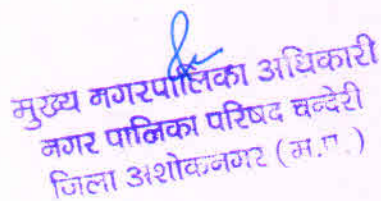 मुख्य नगरपालिका अधिकारी
नगर पालिका परिषद चन्देरी
जिला अशोकनगर (म.प्र.)